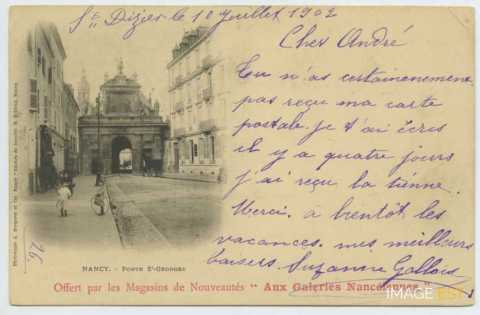 St Dizier le 10 Juillet 1902
Cher André
Tu n'as certainement
pas reçu ma carte
postale. Je t'ai écris
il y a quatre jours
j'ai reçu la tienne.
Merci. à bientôt les
vacances. mes meilleurs
baisers. Suzanne Gallois
26.
NANCY. - PORTE St-GEORGES
Offert par les Magasins de Nouveautés " Aux Galeries Nancéiennes "
IMAGE'EST